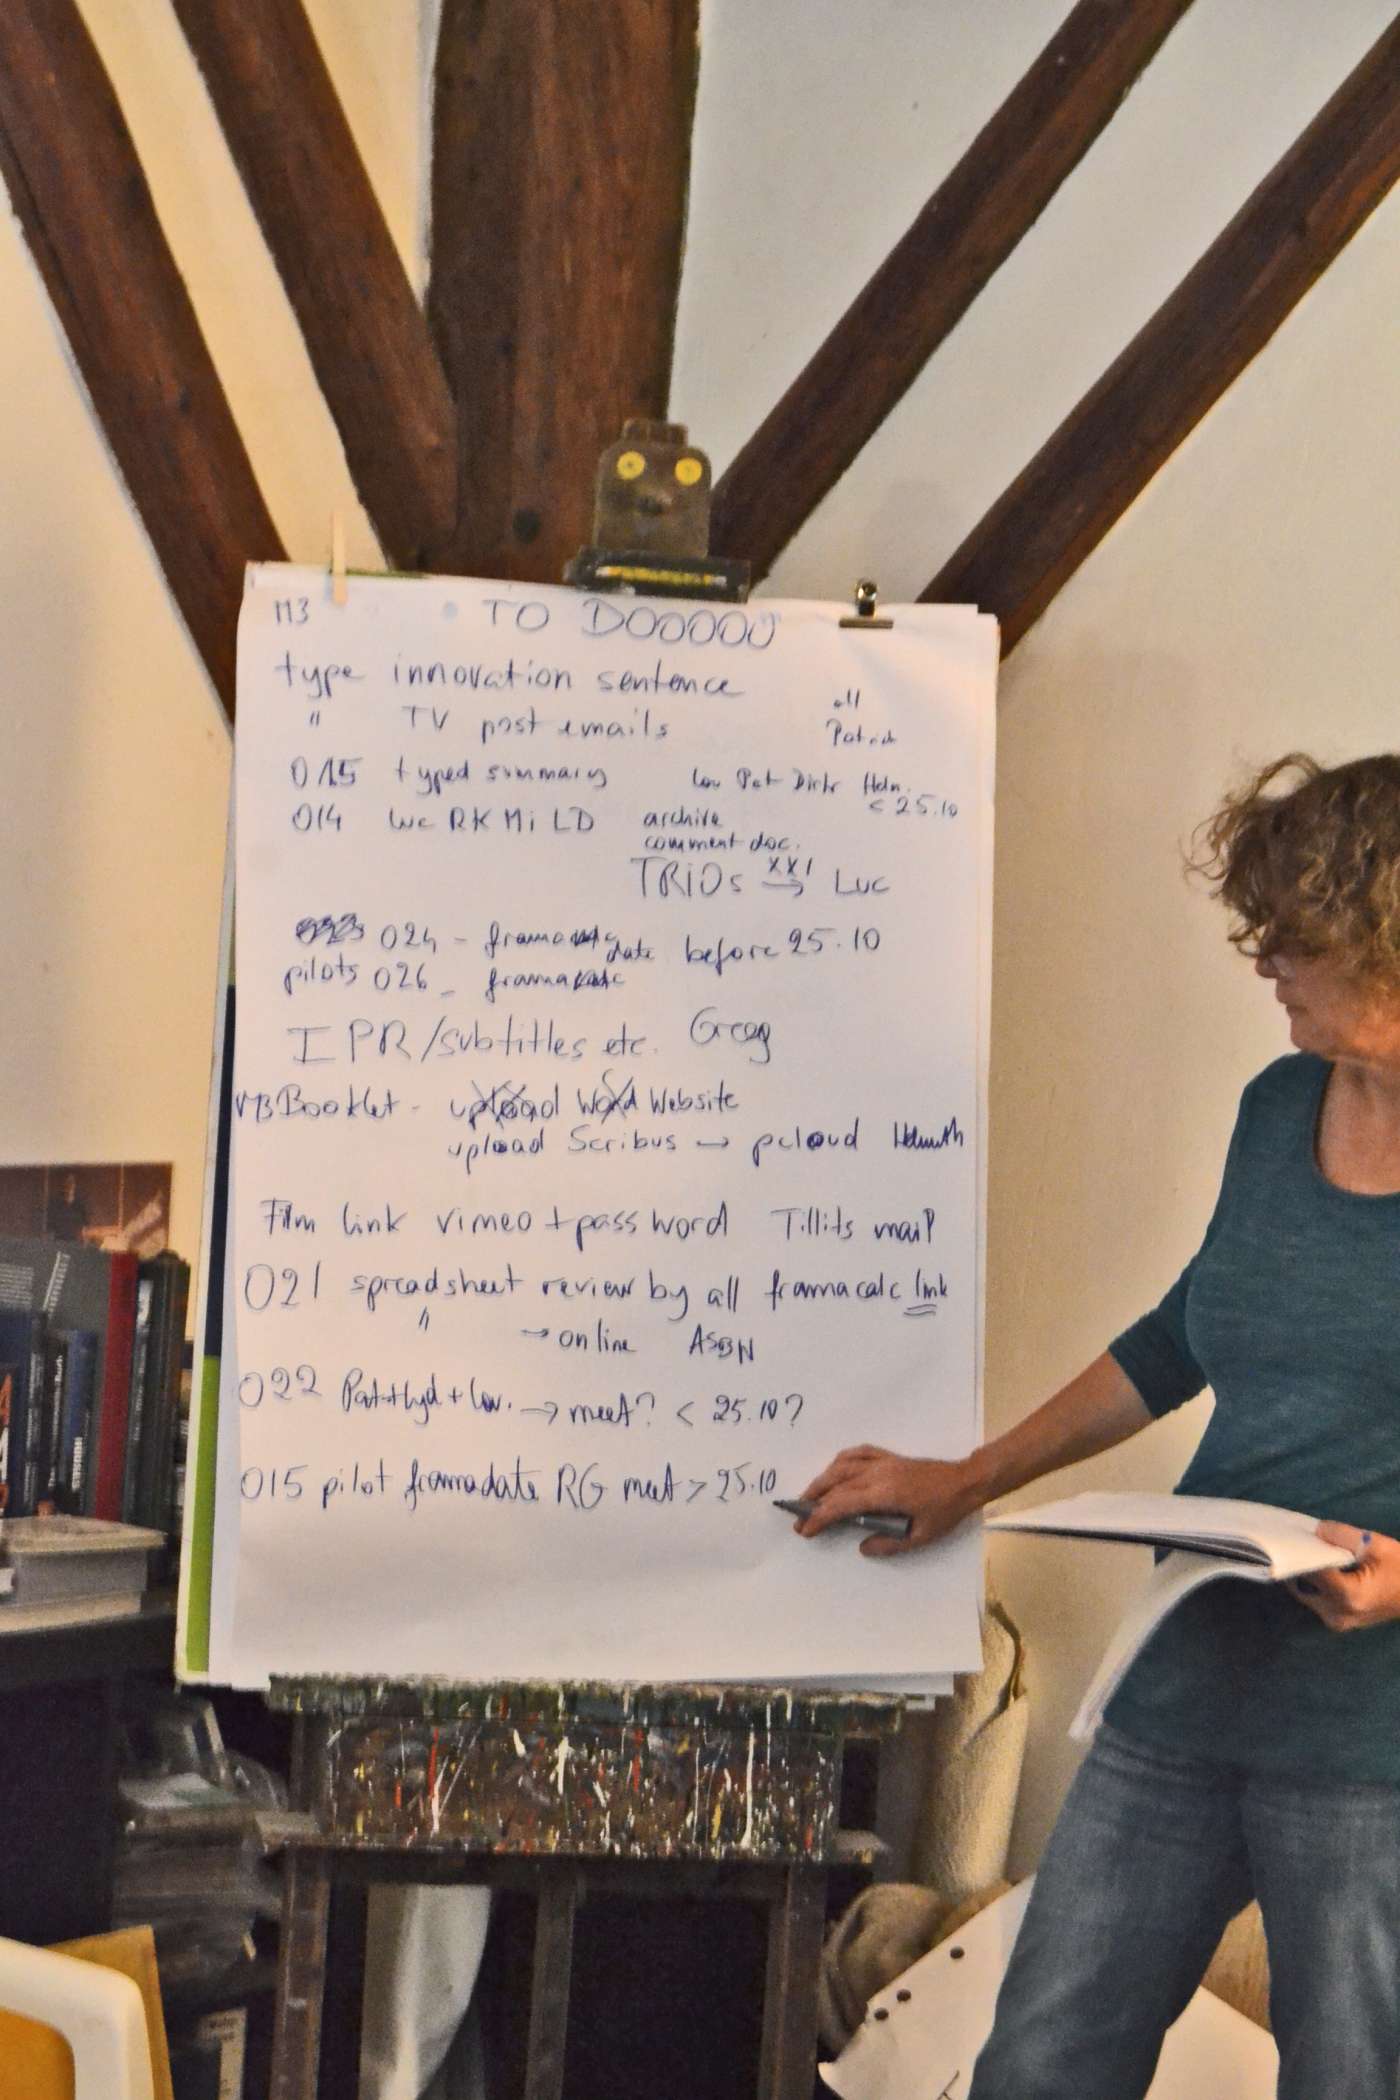 M3 TO DOOOOO
type innovation sentence all
" TV post emails Patrick
015 typed summary Lou Pat Dirk Helm.
< 25.10
014 Luc RK Mi LD archive
comment doc.
TRIOs XXI → Luc
024 - framadate before 25.10
pilots 026 - framacalc
IPR/subtitles etc. Greg
Booklet - upload Word Website
upload Scribus → pcloud Helmuth
Film link vimeo + password Tillits mail
021 spreadsheet review by all framacalc link
" → online ASBN
022 Pat + Hyd + Lou. → meet? < 25.10?
015 pilot framadate RG meet > 25.10